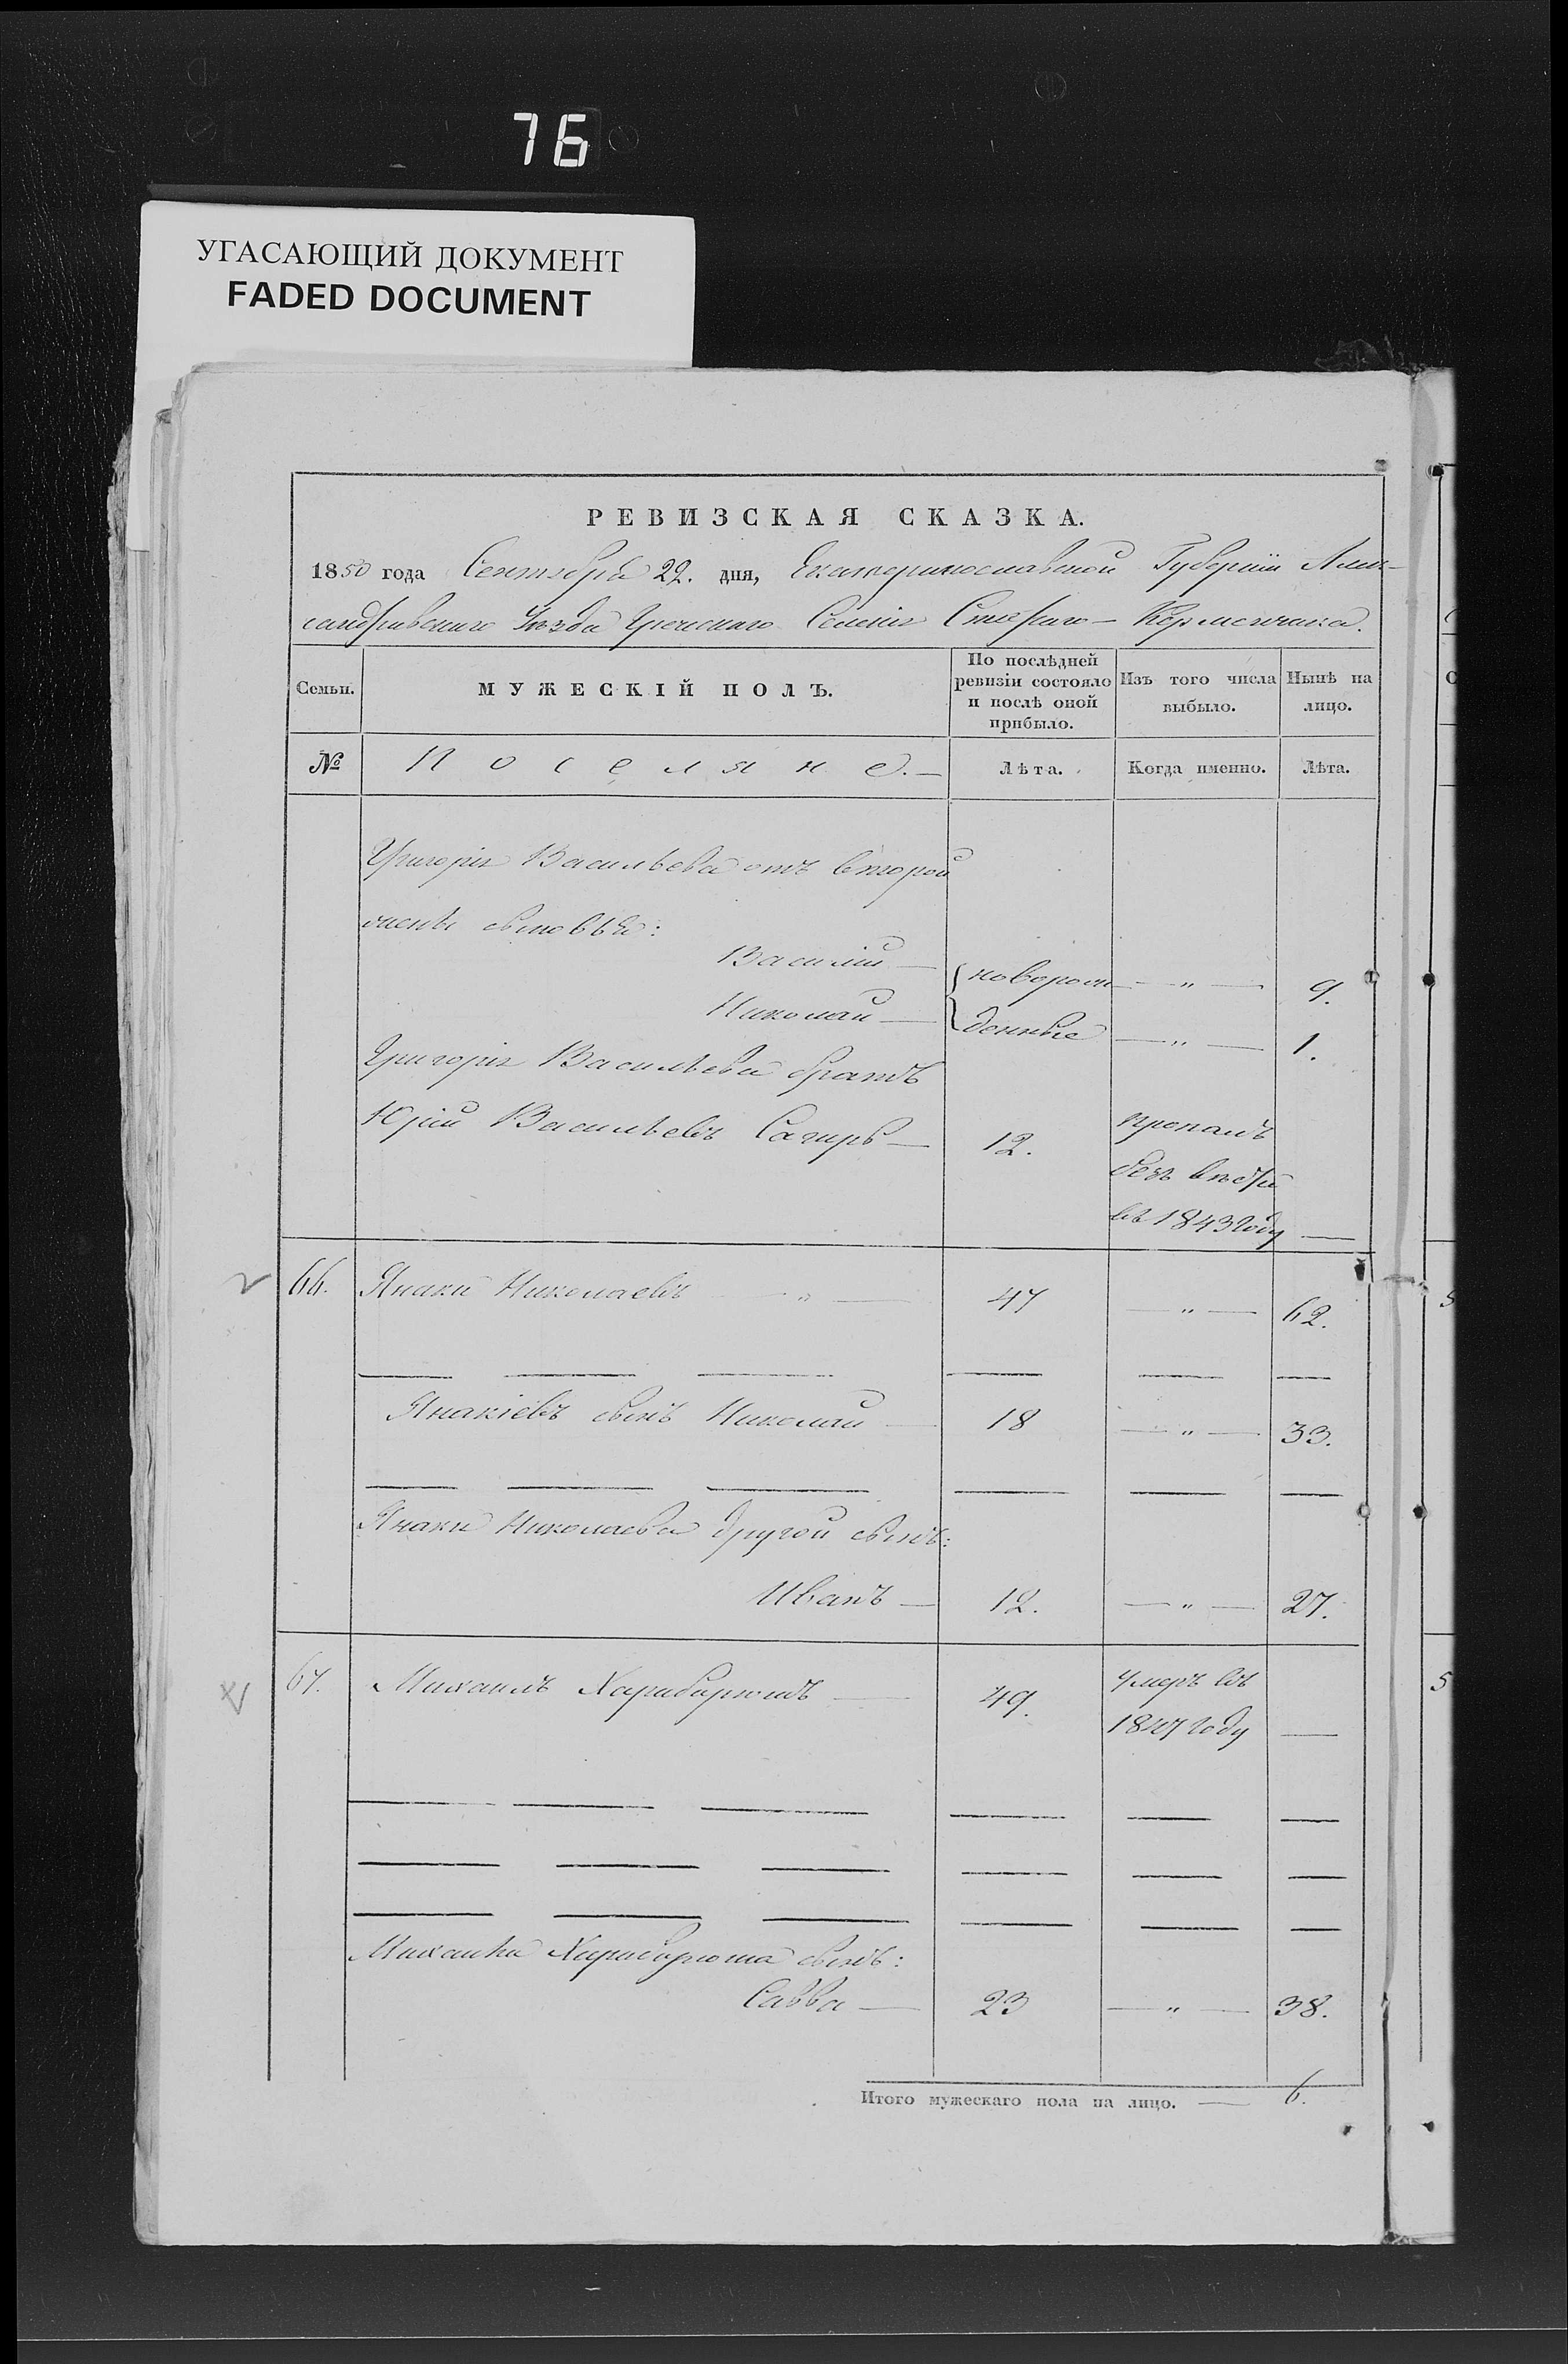 76
УГАСАЮЩИЙ ДОКУМЕНТ
FADED DOCUMENT
РЕВИЗСКАЯ СКАЗКА.
1850 года Сентября 22. дня, Екатеринославской Губерніи Алек-
сандровскаго Уѣзда Греческаго Селенія Стараго-Керменчика.
Семьи.
МУЖЕСКІЙ ПОЛЪ.
По послѣдней ревизіи состояло и послѣ оной прибыло.
Изъ того числа выбыло.
Нынѣ на лицо.
№
Поселяне.—
Лѣта.
Когда именно.
Лѣта.
Григорія Васильева отъ второй
жены сыновья:
Василій — новорож — " — 9.
Николай — денные — " — 1.
Григорія Васильева братъ
Юрій Васильевъ — 12. пропалъ
безъ вѣсти
въ 1843 году —
66. Янаки Николаевъ — " — 47 — " — 62.
Янакіевъ сынъ Николай — 18 — " — 33.
Янаки Николаева другой сынъ:
Иванъ — 12. — " — 27.
67. Михаилъ Харабарюшъ — 49. Умеръ въ
1847 году —
Михаила Харабарюша сынъ:
Савва — 23 — " — 38.
Итого мужескаго пола на лицо. — 6.